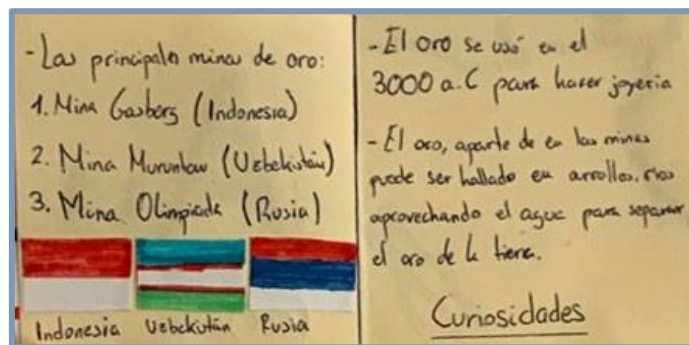 - Las principales minas de oro:
1. Mina Gasberg (Indonesia)
2. Mina Muruntau (Uzbekistán)
3. Mina Olimpiada (Rusia)
Indonesia Uzbekistán Rusia
- El oro se usó en el
3000 a.C para hacer joyería
- El oro, aparte de en las minas
puede ser hallado en arrollos, rios
aprovechando el agua para separar
el oro de la tierra.
Curiosidades